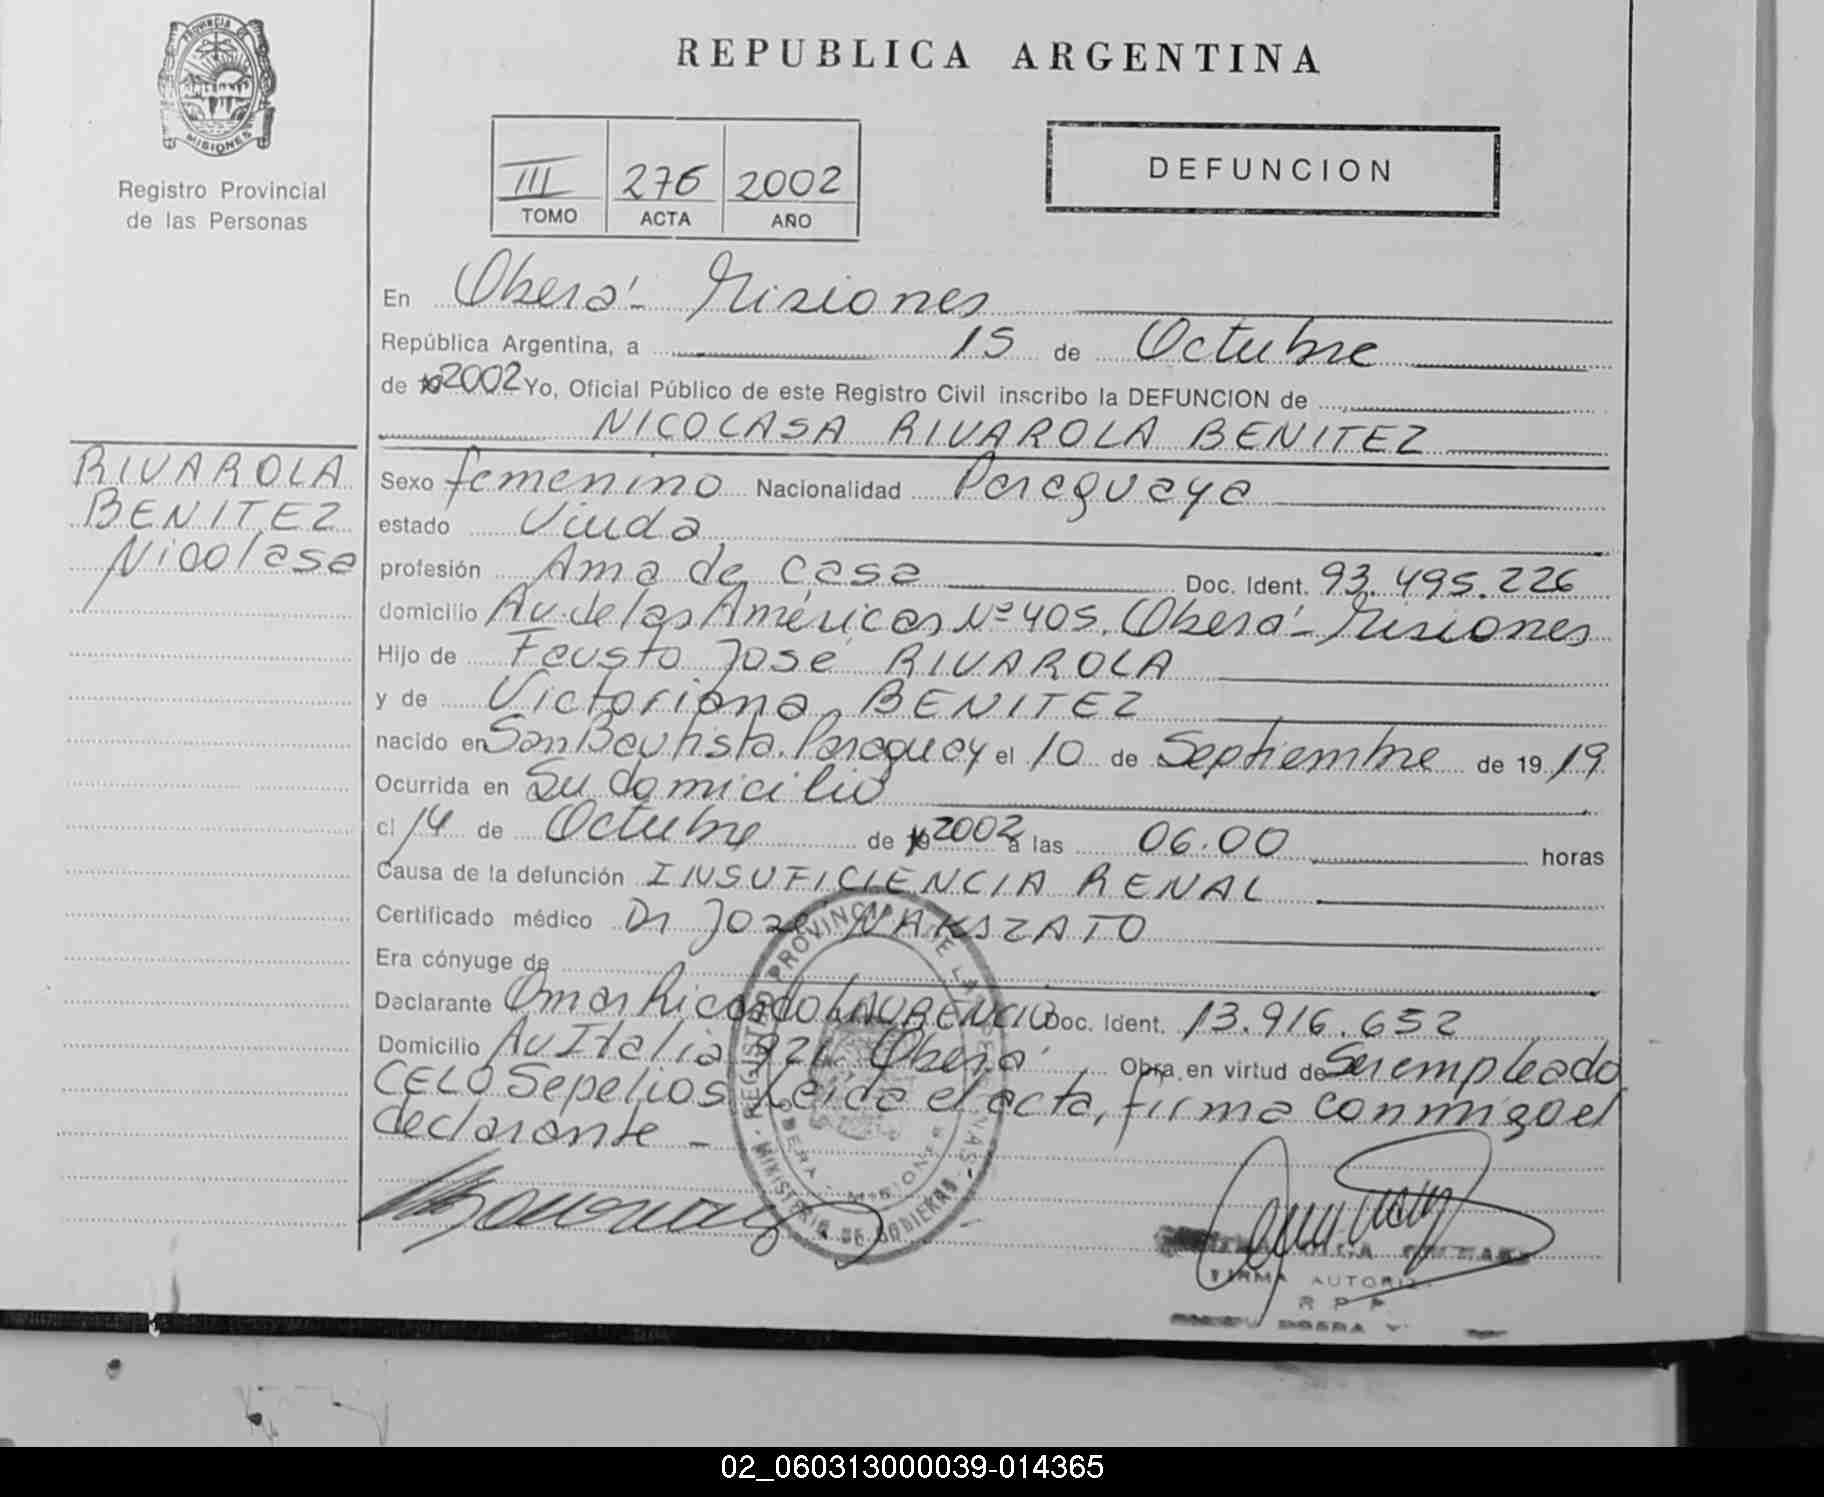 PROVINCIA DE
MISIONES
Registro Provincial
de las Personas
REPUBLICA ARGENTINA
III 276 2002
TOMO ACTA AÑO
DEFUNCION
En Oberá - Misiones
República Argentina, a 15 de Octubre
de 19 2002 Yo, Oficial Público de este Registro Civil inscribo la DEFUNCION de
NICOLASA RIVAROLA BENITEZ
RIVAROLA
BENITEZ
Nicolasa
Sexo femenino Nacionalidad Paraguaya
estado Viuda
profesión Ama de casa Doc. Ident. 93.495.226
domicilio Av. de las Américas Nº 405. Oberá - Misiones
Hijo de Fausto José RIVAROLA
y de Victoriana BENITEZ
nacido en San Bautista. Paraguay el 10 de Septiembre de 19 19
Ocurrida en Su domicilio
el 14 de Octubre de 19 2002 a las 06.00 horas
Causa de la defunción INSUFICIENCIA RENAL
Certificado médico Dr José NAKSZATO
Era cónyuge de
Declarante Omar Ricardo LAURENCIO Doc. Ident. 13.916.652
Domicilio Av Italia 921 Oberá Obra en virtud de Ser empleado
CELO Sepelios. Leida el acta, firma conmigo el
declarante -
REGISTRO PROVINCIAL DE LAS PERSONAS - MINISTERIO DE GOBIERNO -
OBERA - MISIONES
FIRMA AUTORIZ
R P P
02_060313000039-014365